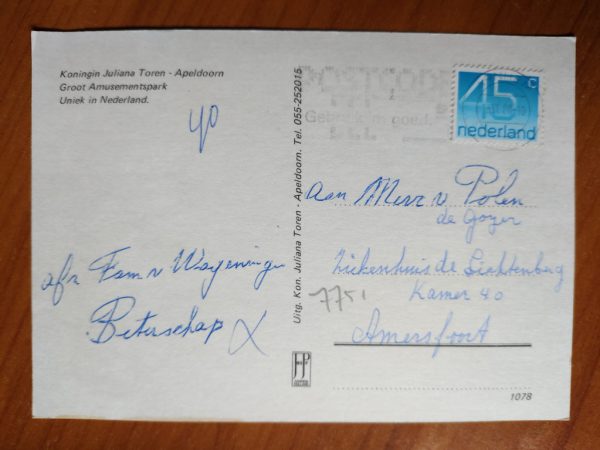 Koningin Juliana Toren - Apeldoorn
Groot Amusementspark
Uniek in Nederland.
40
afz Fam v Wageningen
Beterschap
Uitg. Kon. Juliana Toren - Apeldoorn. Tel. 055-252015
POSTCODE
Gebruik 'm goed.
45 c
nederland
aan Mevr v Polen
de Goyer
Ziekenhuis de Lichtenberg
Kamer 40
Amersfoort
7751
1078